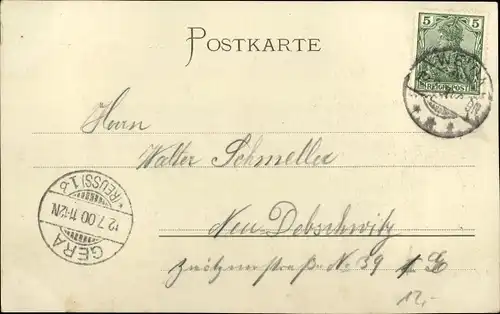 POSTKARTE
5 5
REICHSPOST
Herrn
Walter Schmeller
Neu-Debschwitz
Zwötznerstraße No 39
GERA
12.7.00.11-12N.
*(REUSS) 1.b
12,-